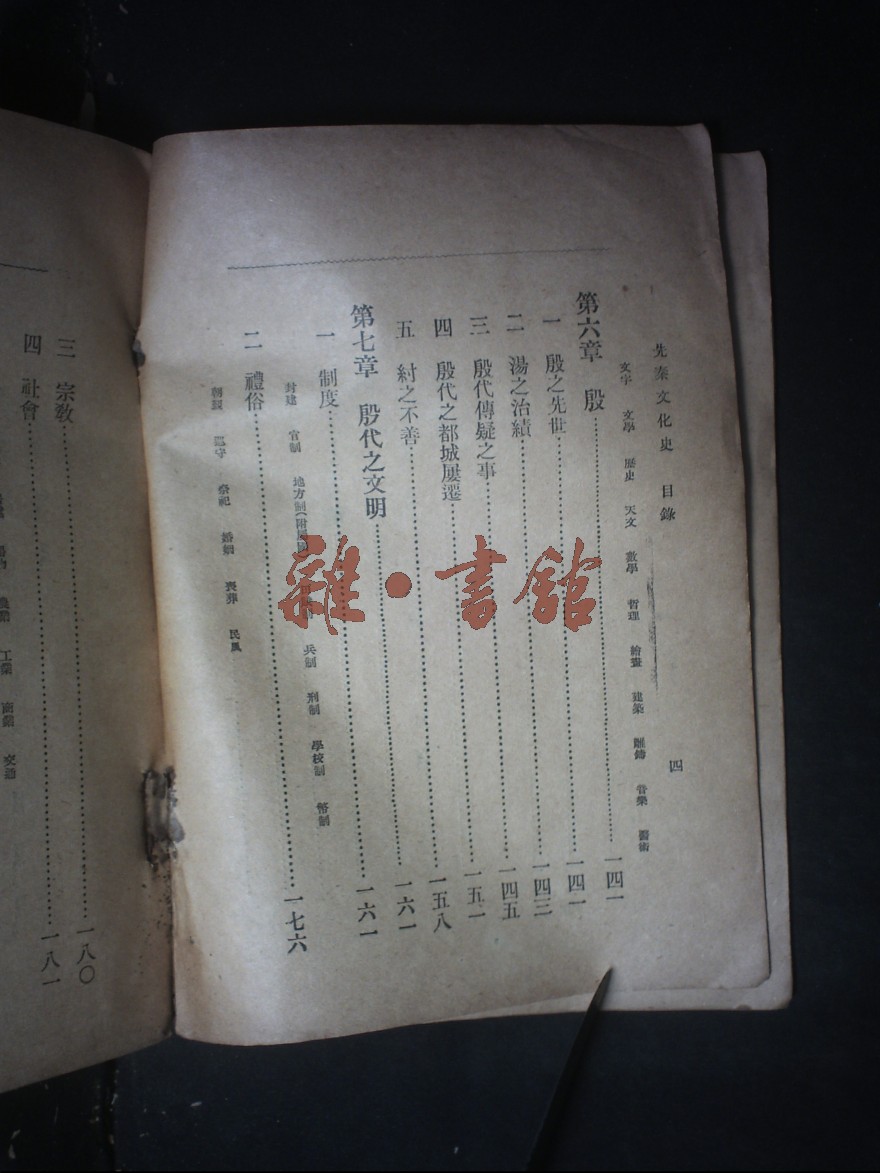 先秦文化史 目錄 四
文字 文學 歷史 天文 數學 哲理 繪畫 建築 雕鑄 音樂 醫術
第六章 殷……一四一
一 殷之先世……一四一
二 湯之治績……一四三
三 殷代傳疑之事……一四五
四 殷代之都城屢遷……一五一
五 紂之不善……一五八
第七章 殷代之文明……一六一
一 制度……一六一
封建 官制 地方制(附 兵制 刑制 學校制 幣制
二 禮俗……一七六
朝覲 巡守 祭祀 婚姻 喪葬 民風
三 宗教……一八〇
四 社會……一八一
農 工業 商業 交通
雜·書館